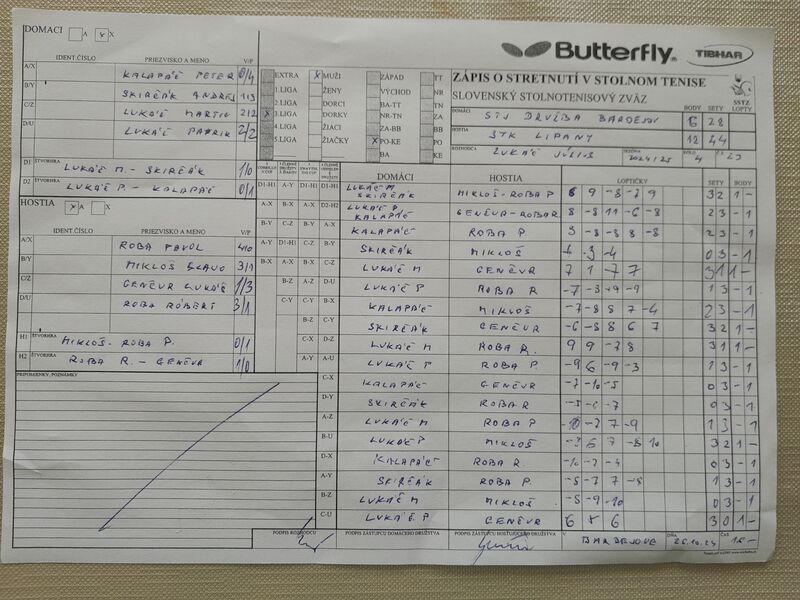 DOMACI A x X
IDENT.ČÍSLO PRIEZVISKO A MENO V/P
A/X KALAPÁČ PETER 0/4
B/Y SKIRČÁK ANDREJ 1/3
C/Z LUKÁČ MARTIN 2/2
D/U LUKÁČ PATRIK 2/2
D1 ŠTVORHRA LUKÁČ M - SKIRČÁK 1/0
D2 ŠTVORHRA LUKÁČ P. - KALAPÁČ 0/1
HOSTIA x A X
IDENT.ČÍSLO PRIEZVISKO A MENO V/P
A/X ROBA PAVOL 4/0
B/Y MIKLOŠ SLAVO 3/1
C/Z GENČUR LUKÁČ 1/3
D/U ROBA RÓBERT 3/1
H1 ŠTVORHRA MIKLOŠ - ROBA P. 0/1
H2 ŠTVORHRA ROBA R. - GENČUR 1/0
PRIPOMIENKY, POZNÁMKY
Butterfly TIBHAR
EXTRA x MUŽI ZÁPAD TT
1.LIGA ŽENY VÝCHOD NR
2.LIGA DORCI BA-TT TN
x 3.LIGA DORKY NR-TN ZA
4.LIGA ŽIACI ZA-BB BB
5.LIGA ŽIAČKY x PO-KE PO
BA KE
ZÁPIS O STRETNUTÍ V STOLNOM TENISE
SLOVENSKÝ STOLNOTENISOVÝ ZVÄZ SSTZ
BODY SETY LOPTY
DOMÁCI STJ DRUŽBA BARDEJOV 6 28
HOSTIA STK LIPANY 12 44
ROZHODCA LUKÁČ JÚLIUS SEZÓNA 2024/25 KOLO 4
DOMÁCI HOSTIA LOPTIČKY SETY BODY
D1-H1 A-Y D1-H1 D1-H1 LUKÁČ M SKIRČÁK MIKLOŠ - ROBA P 6 9 -8 -7 9 3 2 1 -
A-X B-X A-X D2-H2 LUKÁČ P KALAPÁČ GENČUR - ROBA R 8 -8 11 -6 -8 2 3 - 1
B-Y C-Z B-Y A-X KALAPÁČ ROBA P 2 3 - 1
A-Y D1-H1 C-Z B-Y SKIRČÁK MIKLOŠ 0 3 - 1
B-X A-X B-X C-Z LUKÁČ M GENČUR 7 1 -7 7 3 1 1 -
B-Z A-Z D-U LUKÁČ P ROBA R -7 -9 -9 1 3 - 1
C-Y C-Y B-X KALAPÁČ MIKLOŠ -7 -8 8 7 -4 2 3 - 1
B-Z C-Y SKIRČÁK GENČUR -6 -8 8 6 7 3 2 1 -
C-X D-Z LUKÁČ M ROBA R. 9 9 -7 8 3 1 1 -
A-Y A-U LUKÁČ P ROBA P. -9 6 -9 -3 1 3 - 1
C-X KALAPÁČ GENČUR -7 -10 -5 0 3 - 1
D-Y SKIRČÁK ROBA R -7 0 3 - 1
A-Z LUKÁČ M ROBA P -10 -7 7 -9 1 3 - 1
B-U LUKÁČ P MIKLOŠ 6 7 -8 10 3 2 1 -
D-X KALAPÁČ ROBA R. -10 -7 -4 0 3 - 1
A-Y SKIRČÁK ROBA P. -8 -7 7 -8 1 3 - 1
B-Z LUKÁČ M MIKLOŠ -8 -9 -10 0 3 - 1
C-U LUKÁČ P GENČUR 6 6 3 0 1 -
PODPIS ROZHODCU PODPIS ZÁSTUPCU DOMÁCEHO DRUŽSTVA PODPIS ZÁSTUPCU HOSŤUJÚCEHO DRUŽSTVA V BARDEJOVE DŇA 26.10.24 ČAS